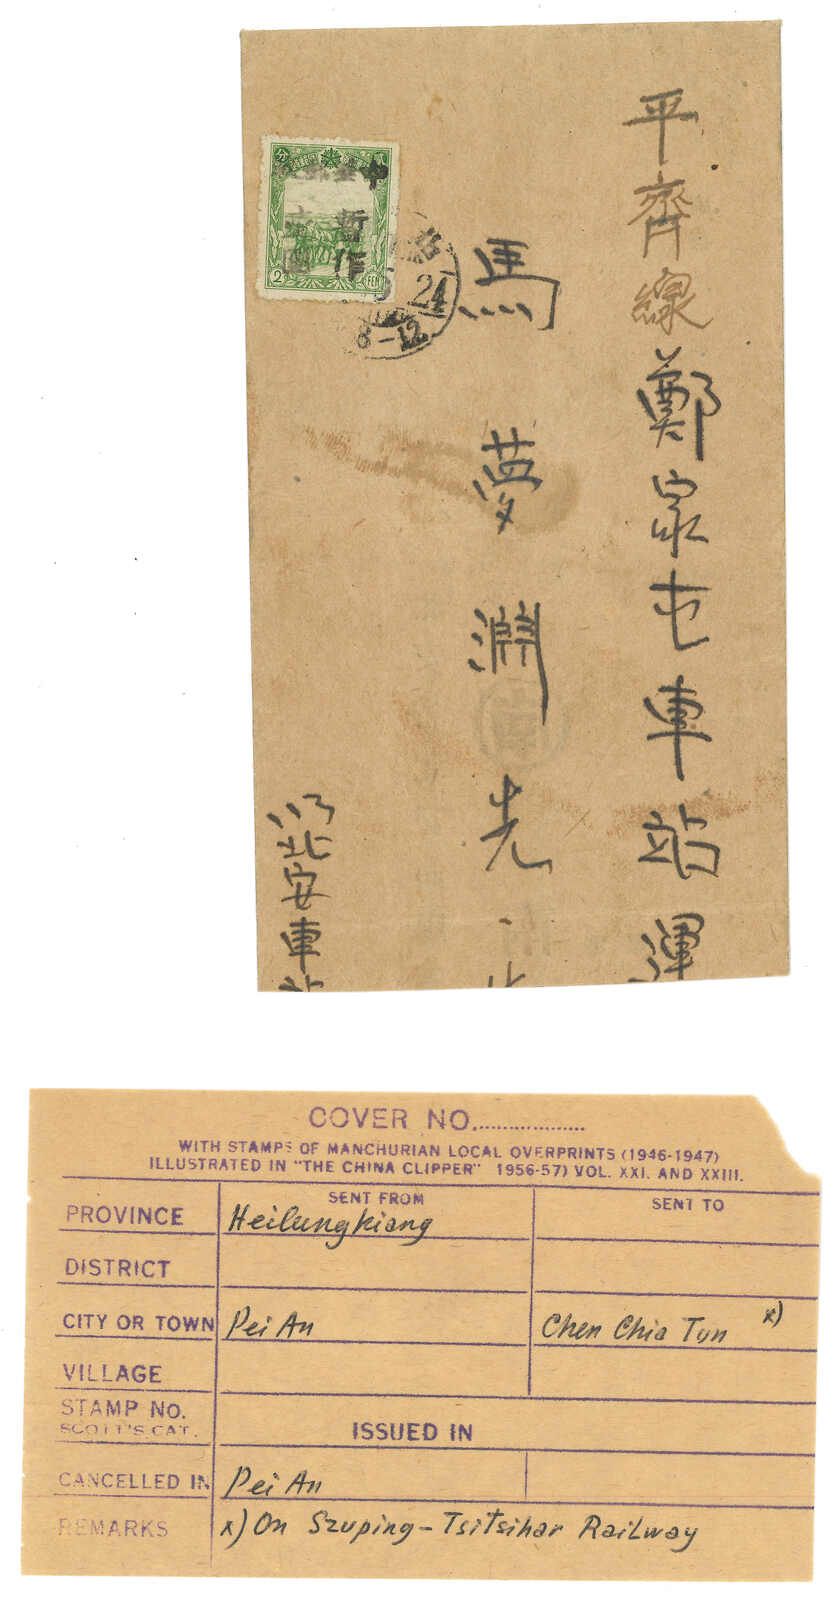 平齊線鄭家屯車站運
馬夢淵先
北安車站
暫作
2
FEN
24
8-12
COVER NO...................
WITH STAMPS OF MANCHURIAN LOCAL OVERPRINTS (1946-1947)
ILLUSTRATED IN "THE CHINA CLIPPER" 1956-57) VOL. XXI. AND XXIII.
SENT FROM SENT TO
PROVINCE Heilungkiang
DISTRICT
CITY OR TOWN Pei An Chen Chia Tun x)
VILLAGE
STAMP NO.
SCOTT'S CAT. ISSUED IN
CANCELLED IN Pei An
REMARKS x) On Szuping-Tsitsihar Railway